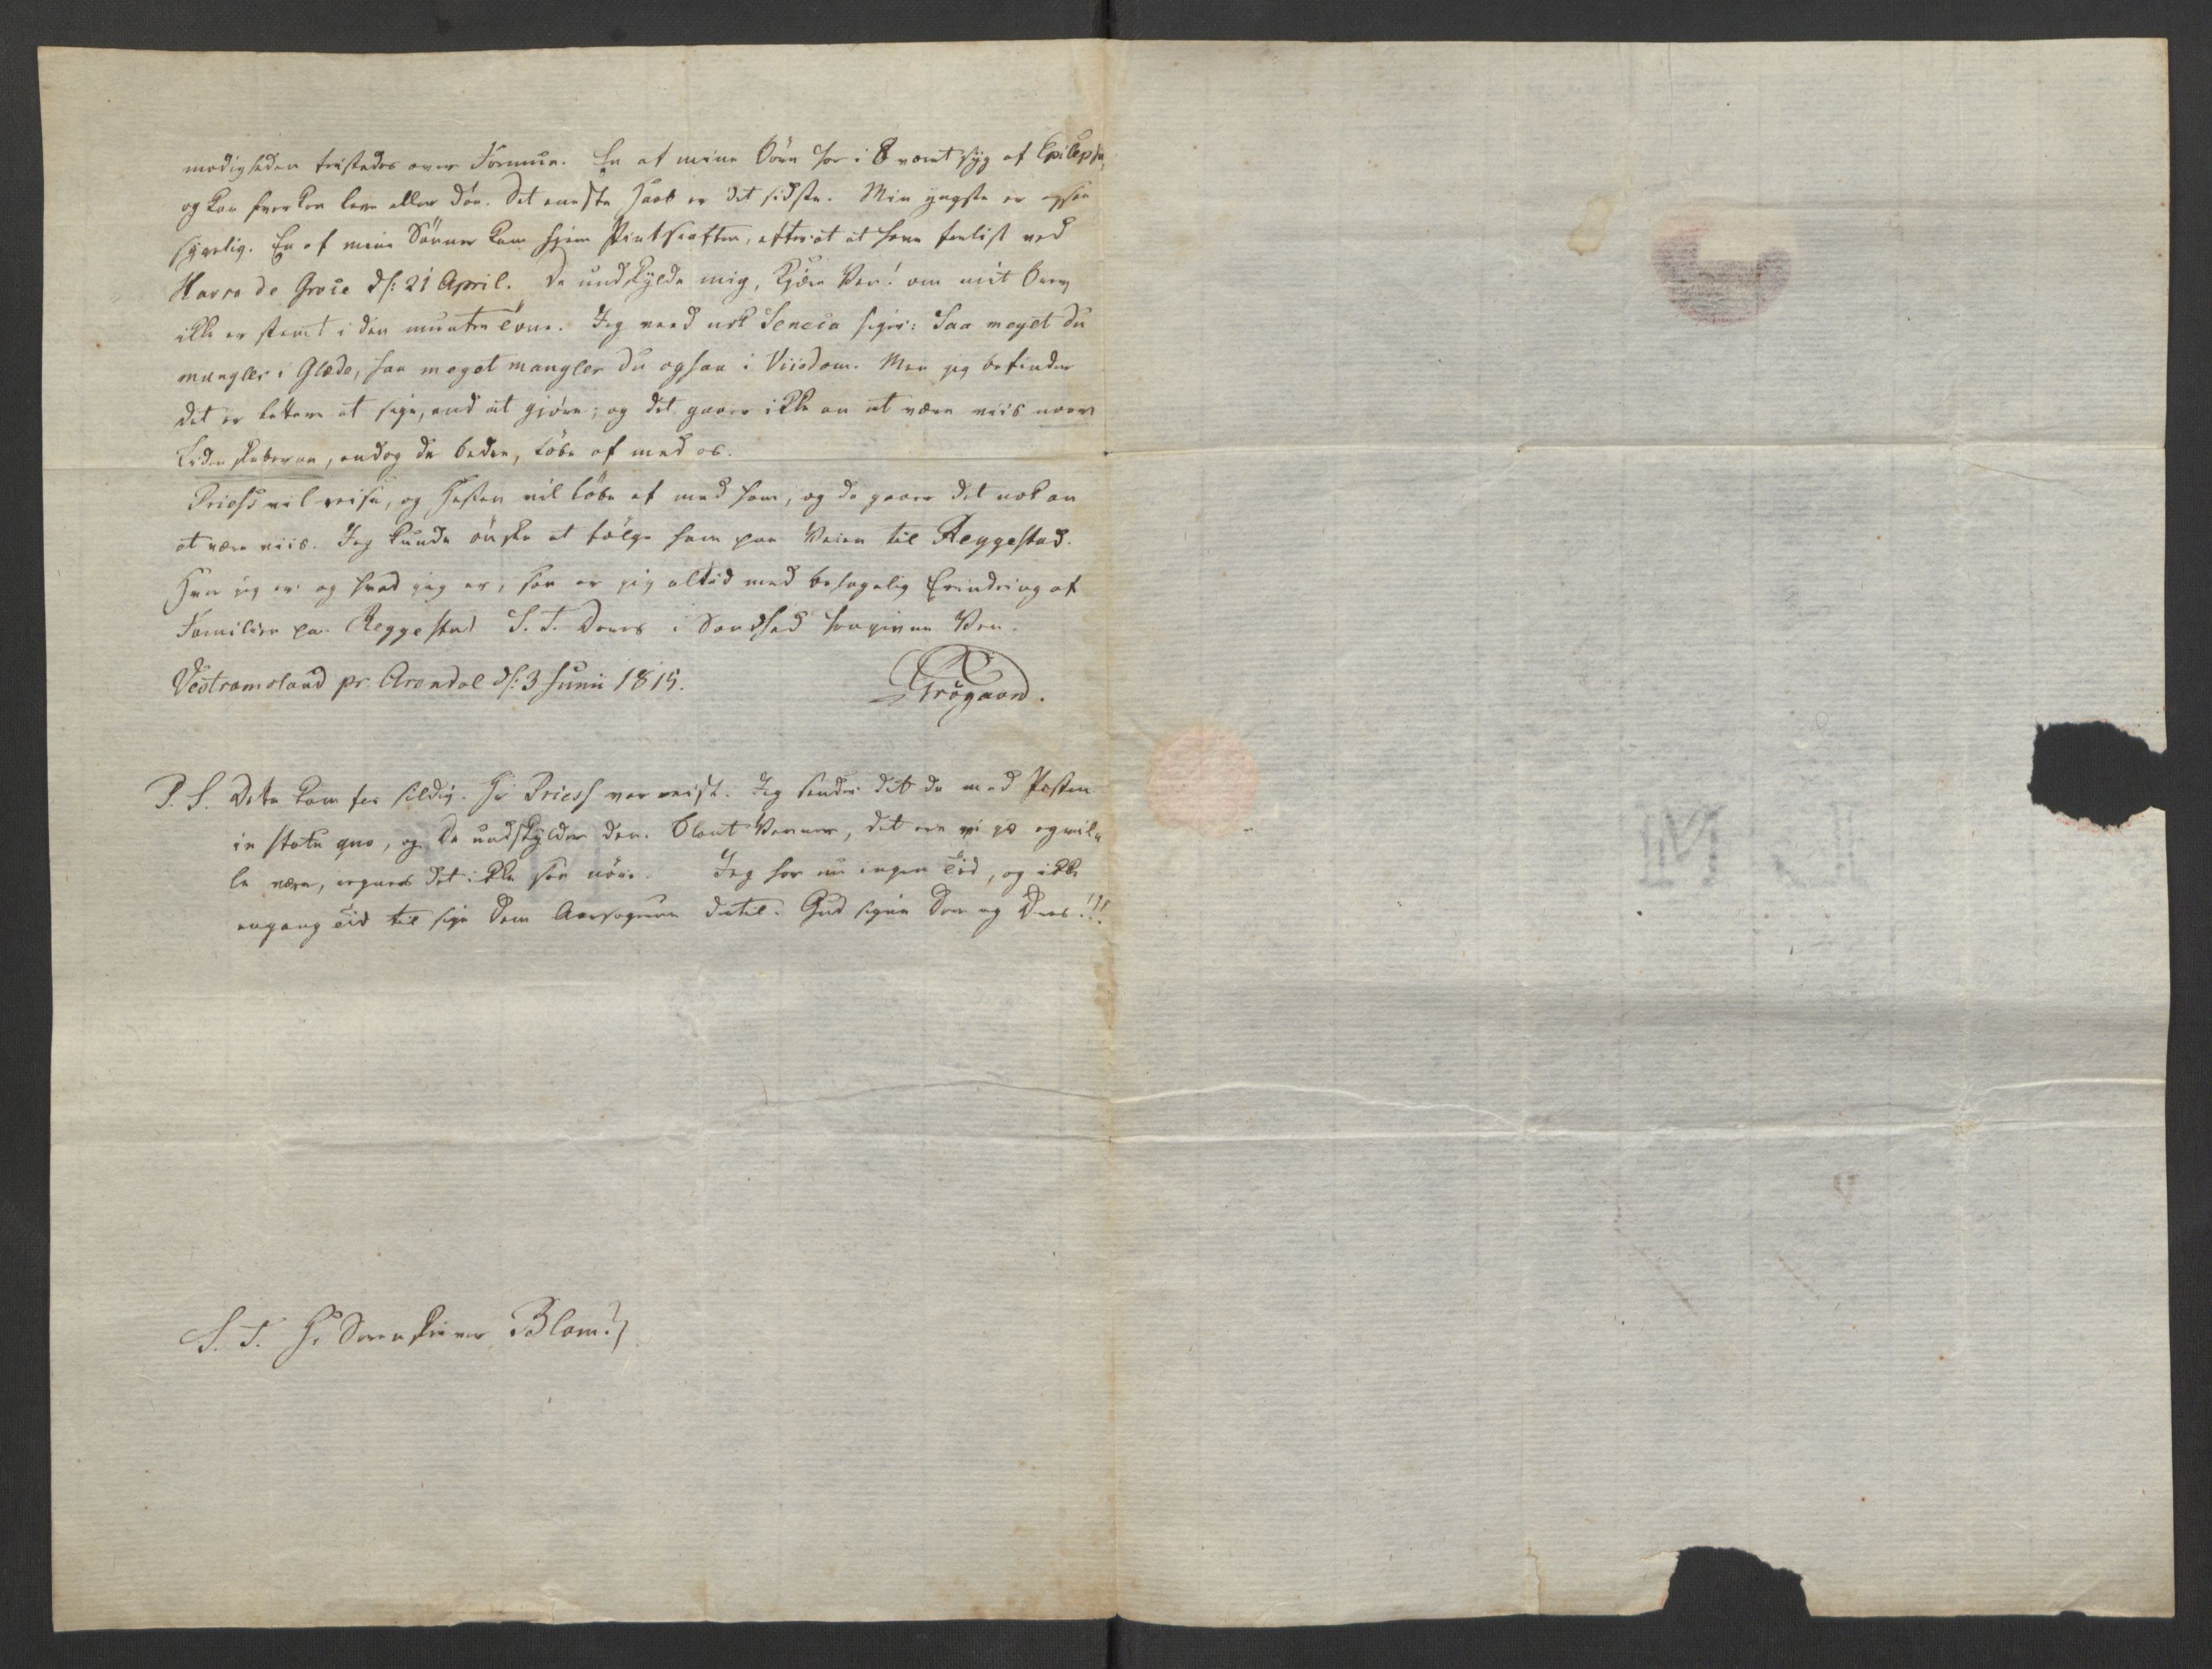 modigheden fristedes over Formue. En af mine Börn har i 8 været syg af Epilepsie,
og kan hverken leve eller döe. Det eneste Haab er det sidste. Min yngste er ogsaa
sygelig. En af mine Sönner kom hjem Pintseaften, efterat at have forlist ved
Havre de Grace d/: 21 April. De undskylde mig, kjære Ven! om mit Brev
ikke er stemt i den muntre Tone. Jeg veed nok Seneca siger: Saa meget du
mangler i Glæde, saa meget mangler du ogsaa i Viisdom. Men jeg befinder
det er lettere at sige, end at gjöre; og det gaaer ikke an at være viis naar
Lidenskaberne, endog de bedre, löbe af med os.
Priess vil reise, og Hesten vil löbe af med ham, og da gaaer det nok an
at være viis. Jeg kunde önske at fölge ham paa Veien til Reggestad.
Hvor jeg er og hvad jeg er, saa er jeg altid med behagelig Erindring af
Familien paa Reggestad S. T. Deres i Sandhed hengivne Ven.
Vestramoland pr. Arendal d/: 3 Junii 1815.
Grögaard.
P. S. Dette kom for sildig. Hr Priess var reist. Jeg sender det da med Posten
in statu quo, og De undskylder den. Blant Venner, det ere vi jo og ville
være, regnes det ikke saa nöie. Jeg har nu ingen Tid, og ikke
engang Tid til sige Dem Aarsagerne dertil. Gud signe Dem og Deres!!!
S. T. Hr Sorenskriver Blom!